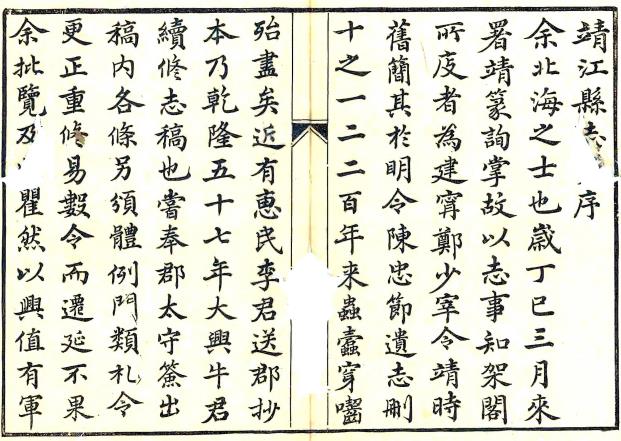 靖江縣志序
余北海之士也歲丁巳三月來
署靖篆詢掌故以志事知架閣
所庋者為建甯鄭少宰令靖時
舊簡其於明令陳忠節遺志刪
十之一二二百年来蟲蠹穿囓
殆盡矣近有惠民李君送郡抄
本乃乾隆五十七年大興牛君
續修志稿也嘗奉郡太守簽出
稿内各條另頒體例門類札令
更正重修易數令而遷延不果
余批覽及瞿然以興值有軍